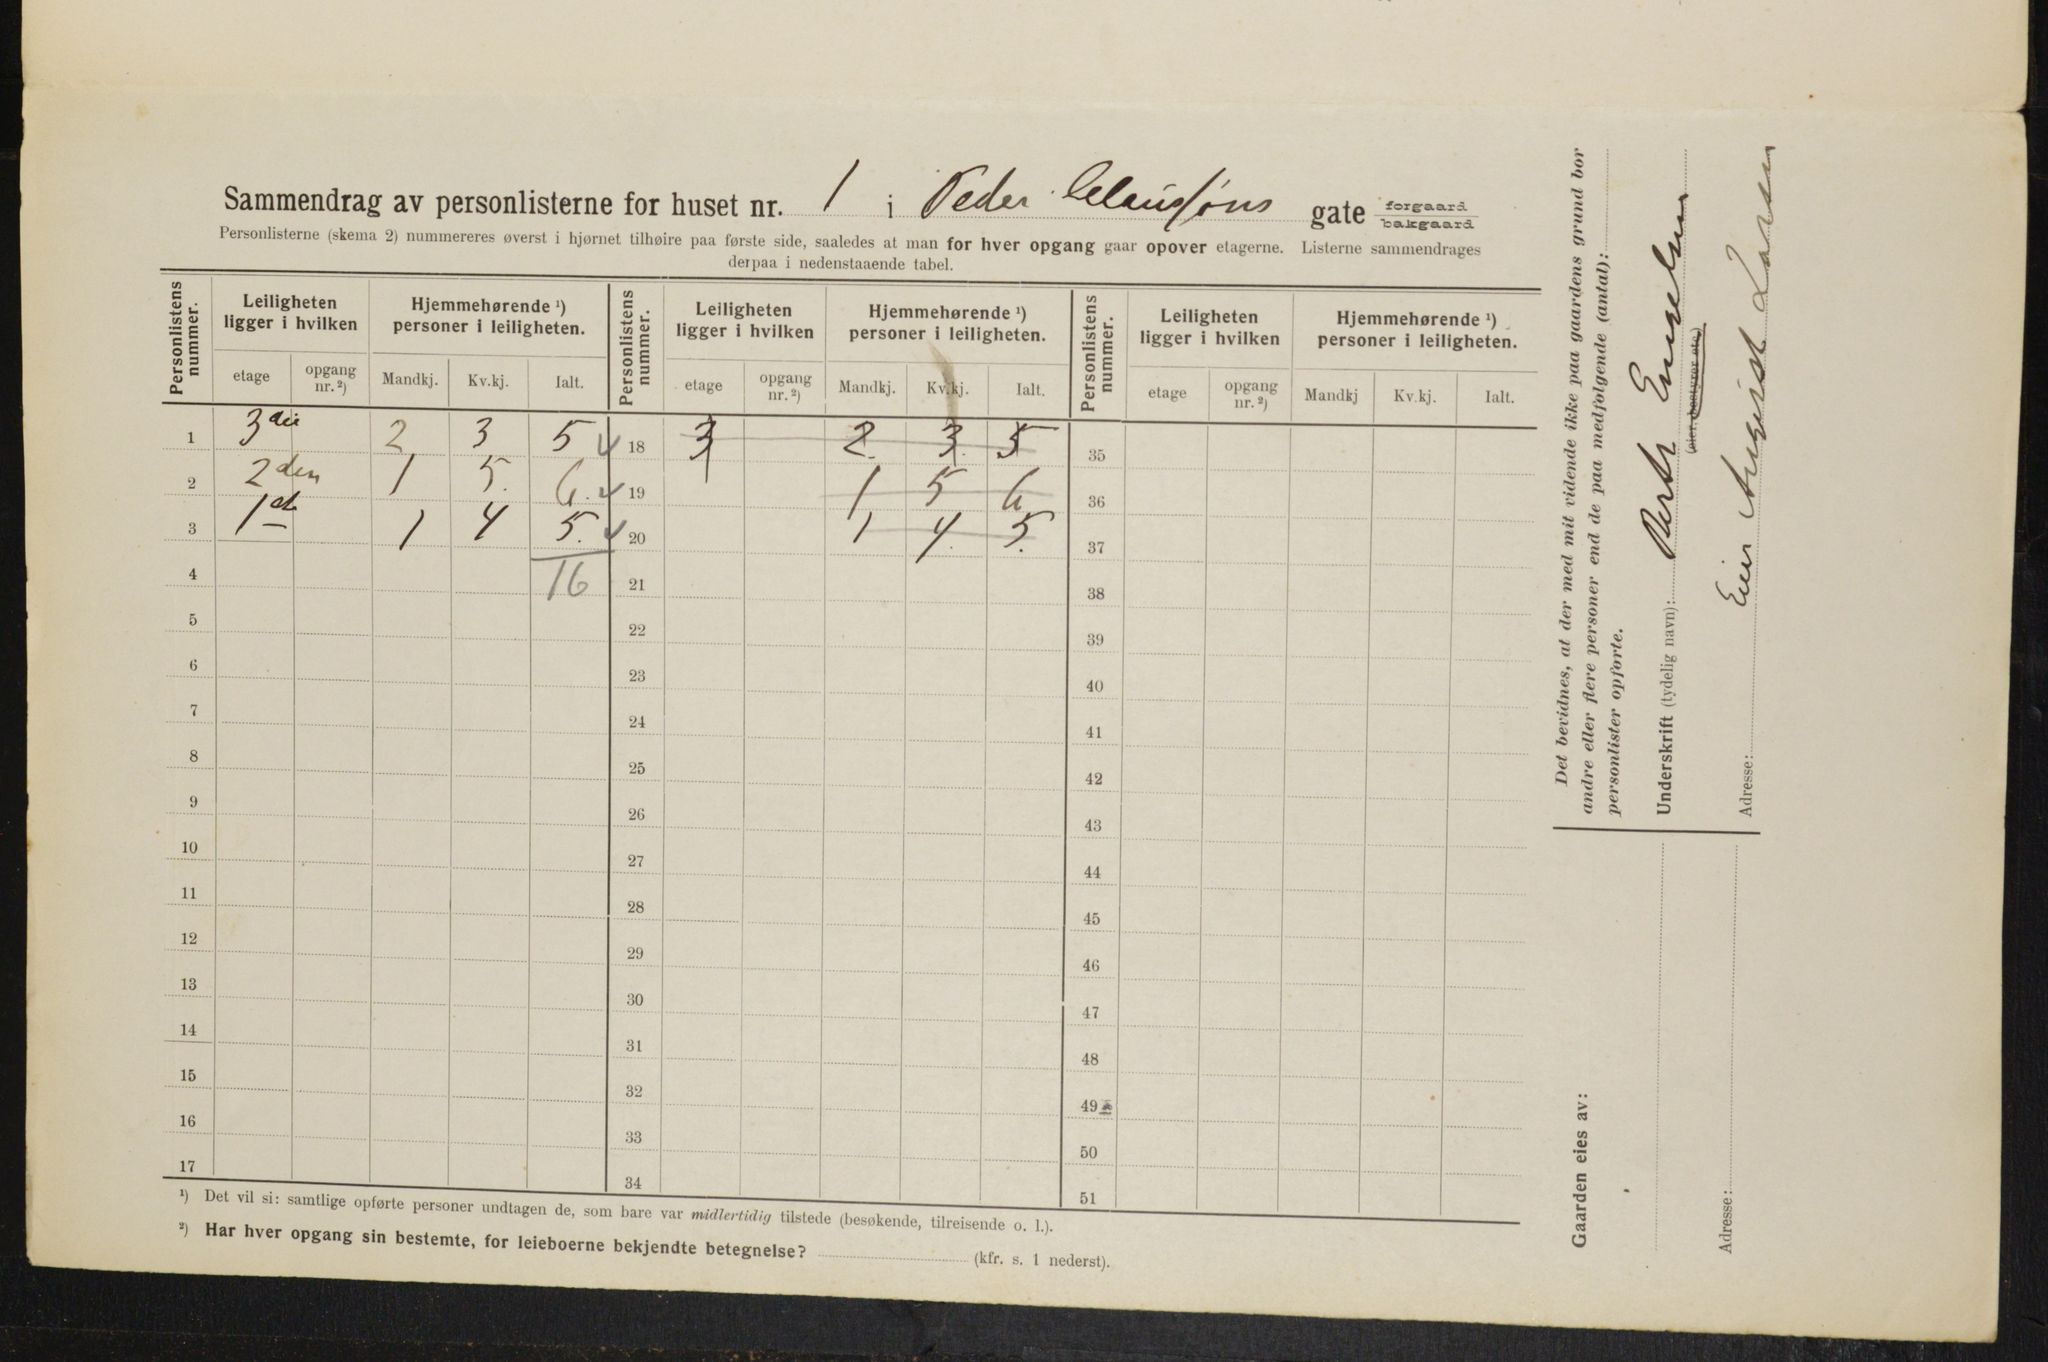 Sammendrag av personlisterne for huset nr. 1 i Peder Claussøns gate forgaard bakgaard
Personlisterne (skema 2) nummereres øverst i hjørnet tilhøire paa første side, saaledes at man for hver opgang gaar opover etagerne. Listerne sammendrages
derpaa i nedenstaaende tabel.
Personlistens nummer. Leiligheten ligger i hvilken Hjemmehørende ¹) personer i leiligheten. Personlistens nummer. Leiligheten ligger i hvilken Hjemmehørende ¹) personer i leiligheten. Personlistens nummer. Leiligheten ligger i hvilken Hjemmehørende ¹) personer i leiligheten.
etage opgang nr. ²) Mandkj. Kv.kj. Ialt. etage opgang nr. ²) Mandkj. Kv.kj. Ialt. etage opgang nr. ²) Mandkj Kv.kj. Ialt.
1 3die 2 3 5 18 3 2. 3. 5 35
2 2den 1 5. 6. 19 1 5 6 36
3 1ste 1 4 5. 20 1 4. 5. 37
4 16 21 38
5 22 39
6 23 40
7 24 41
8 25 42
9 26 43
10 27 44
11 28 45
12 29 46
13 30 47
14 31 48
15 32 49
16 33 50
17 34 51
¹) Det vil si: samtlige opførte personer undtagen de, som bare var midlertidig tilstede (besøkende, tilreisende o. l.).
²) Har hver opgang sin bestemte, for leieboerne bekjendte betegnelse? (kfr. s. 1 nederst).
Det bevidnes, at der med mit vidende ikke paa gaardens grund bor
andre eller flere personer end de paa medfølgende (antal):
personlister opførte.
Underskrift (tydelig navn):
(eier, bestyrer etc.)
Adresse: Eier August Larsen
Gaarden eies av:
Adresse: